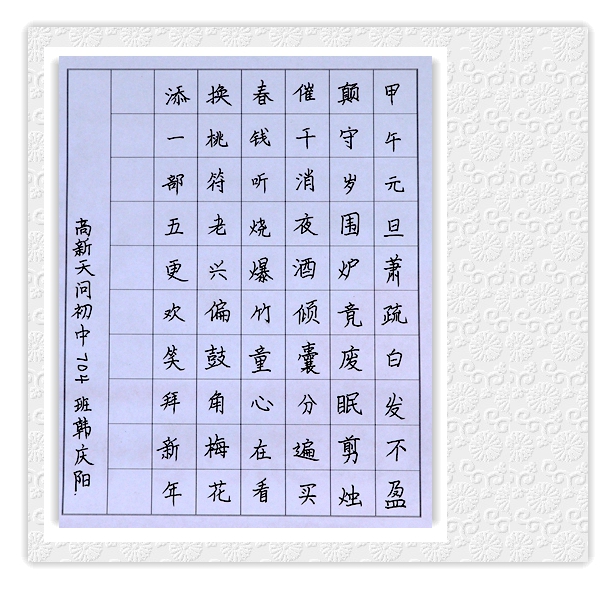 甲午元旦萧疏白发不盈
颠守岁围炉竟废眠剪烛
催干消夜酒倾囊分遍买
春钱听烧爆竹童心在看
换桃符老兴偏鼓角梅花
添一部五更欢笑拜新年
高新天问初中704班韩庆阳.